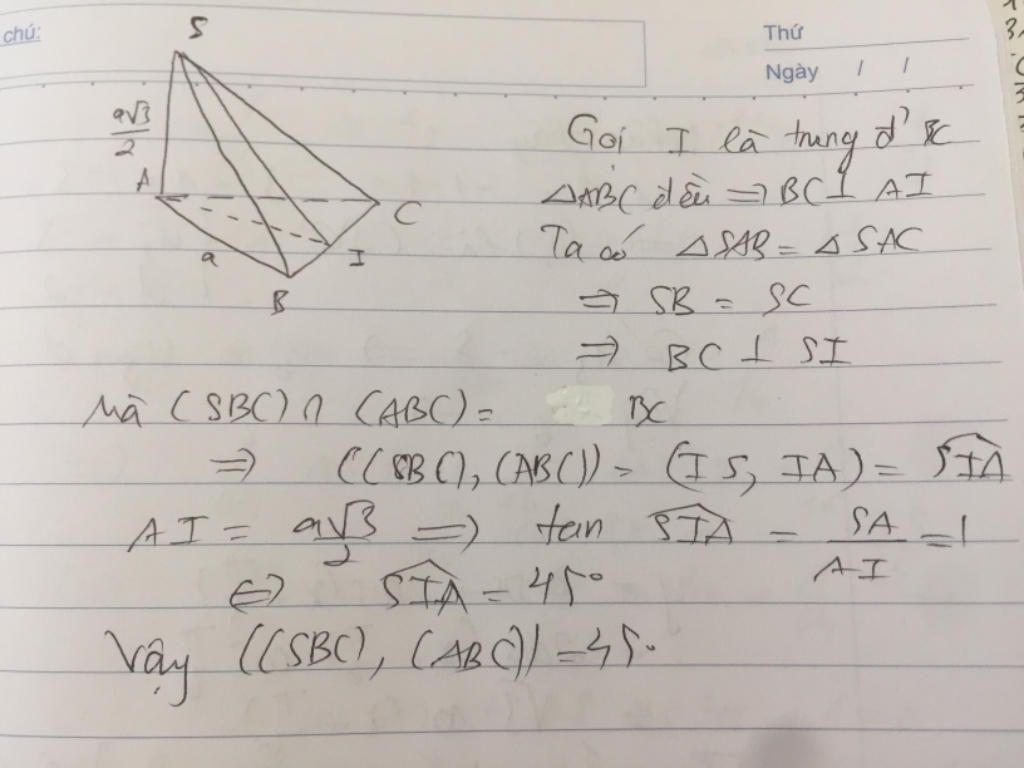 chú:
Thứ
Ngày / /
S
a√3/2
A
C
a
I
B
Gọi I là trung đ' BC
△ABC đều ⇒ BC ⊥ AI
Ta có △SAB = △SAC
⇒ SB = SC
⇒ BC ⊥ SI
Mà (SBC) ∩ (ABC) = BC
⇒ ((SBC), (ABC)) = (IS, IA) = \widehat{SIA}
AI = a√3/2 ⇒ tan \widehat{SIA} = SA/AI = 1
⇔ \widehat{SIA} = 45°
Vậy ((SBC), (ABC)) = 45°